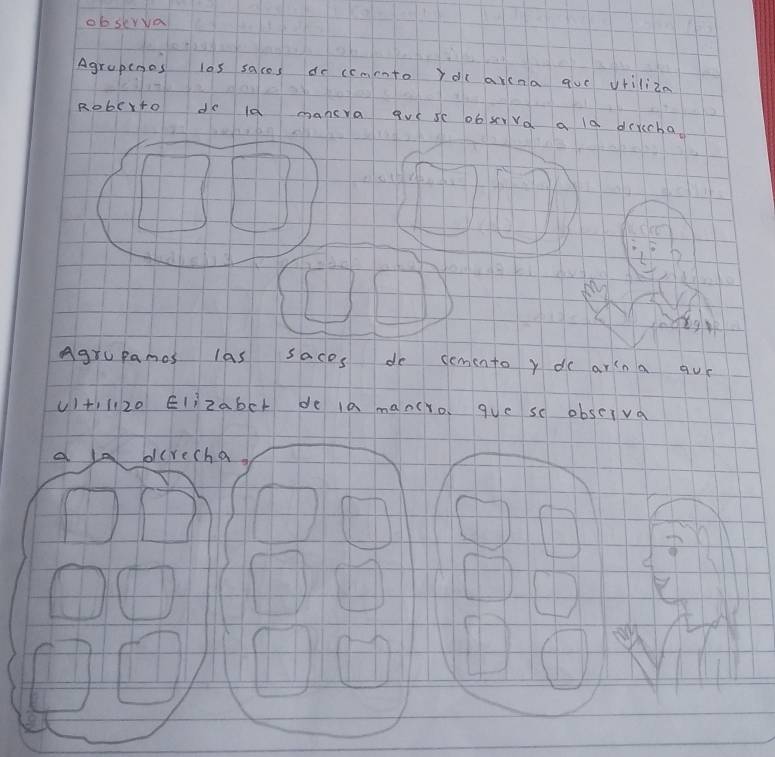 observa
Agrupemos los sacos de cemento y de arena que utiliza
Roberto de la manera que se observa a la derecha.
Agrupamos las sacos de cemento y de arena que
ultilizo Elizabet de la manera que se observa
a la derecha.